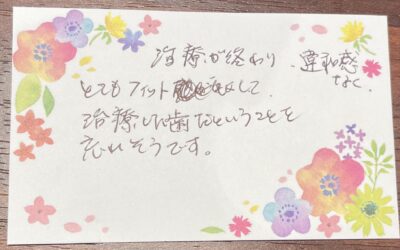 治療が終わり、違和感なく、
とてもフィットして、
治療した歯だということを
忘れそうです。